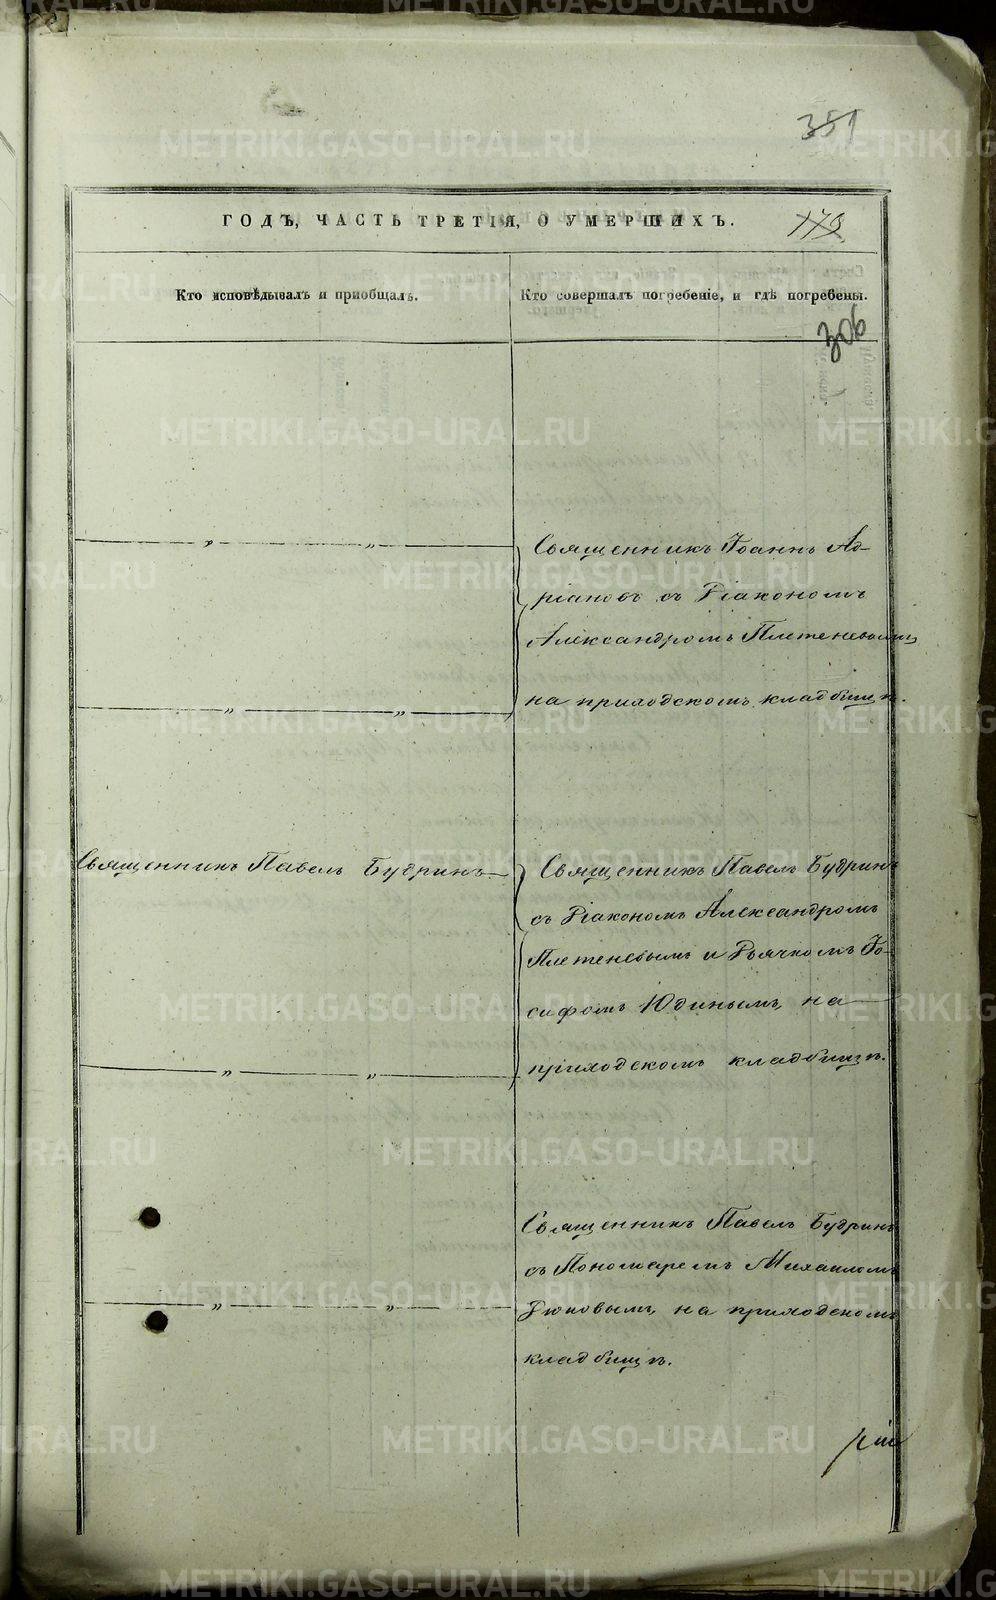 351
ГОДЪ, ЧАСТЬ ТРЕТІЯ, О УМЕРШИХЪ.
179
Кто исповѣдывалъ и пріобщалъ.
Кто совершалъ погребеніе, и гдѣ погребены.
306
Священникъ Іоаннъ Ад-
ріановъ съ Діакономъ
Александромъ Плетеневымъ
на приходскомъ кладбищѣ.
Священникъ Павелъ Будринъ
Священникъ Павелъ Будринъ
съ Діакономъ Александромъ
Плетеневымъ и Дьячкомъ Іо-
сифомъ Юдинымъ, на
приходскомъ кладбищѣ.
Священникъ Павелъ Будринъ
съ Пономаремъ Михаиломъ
на приходскомъ
кладбищѣ.
METRIKI.GASO-URAL.RU